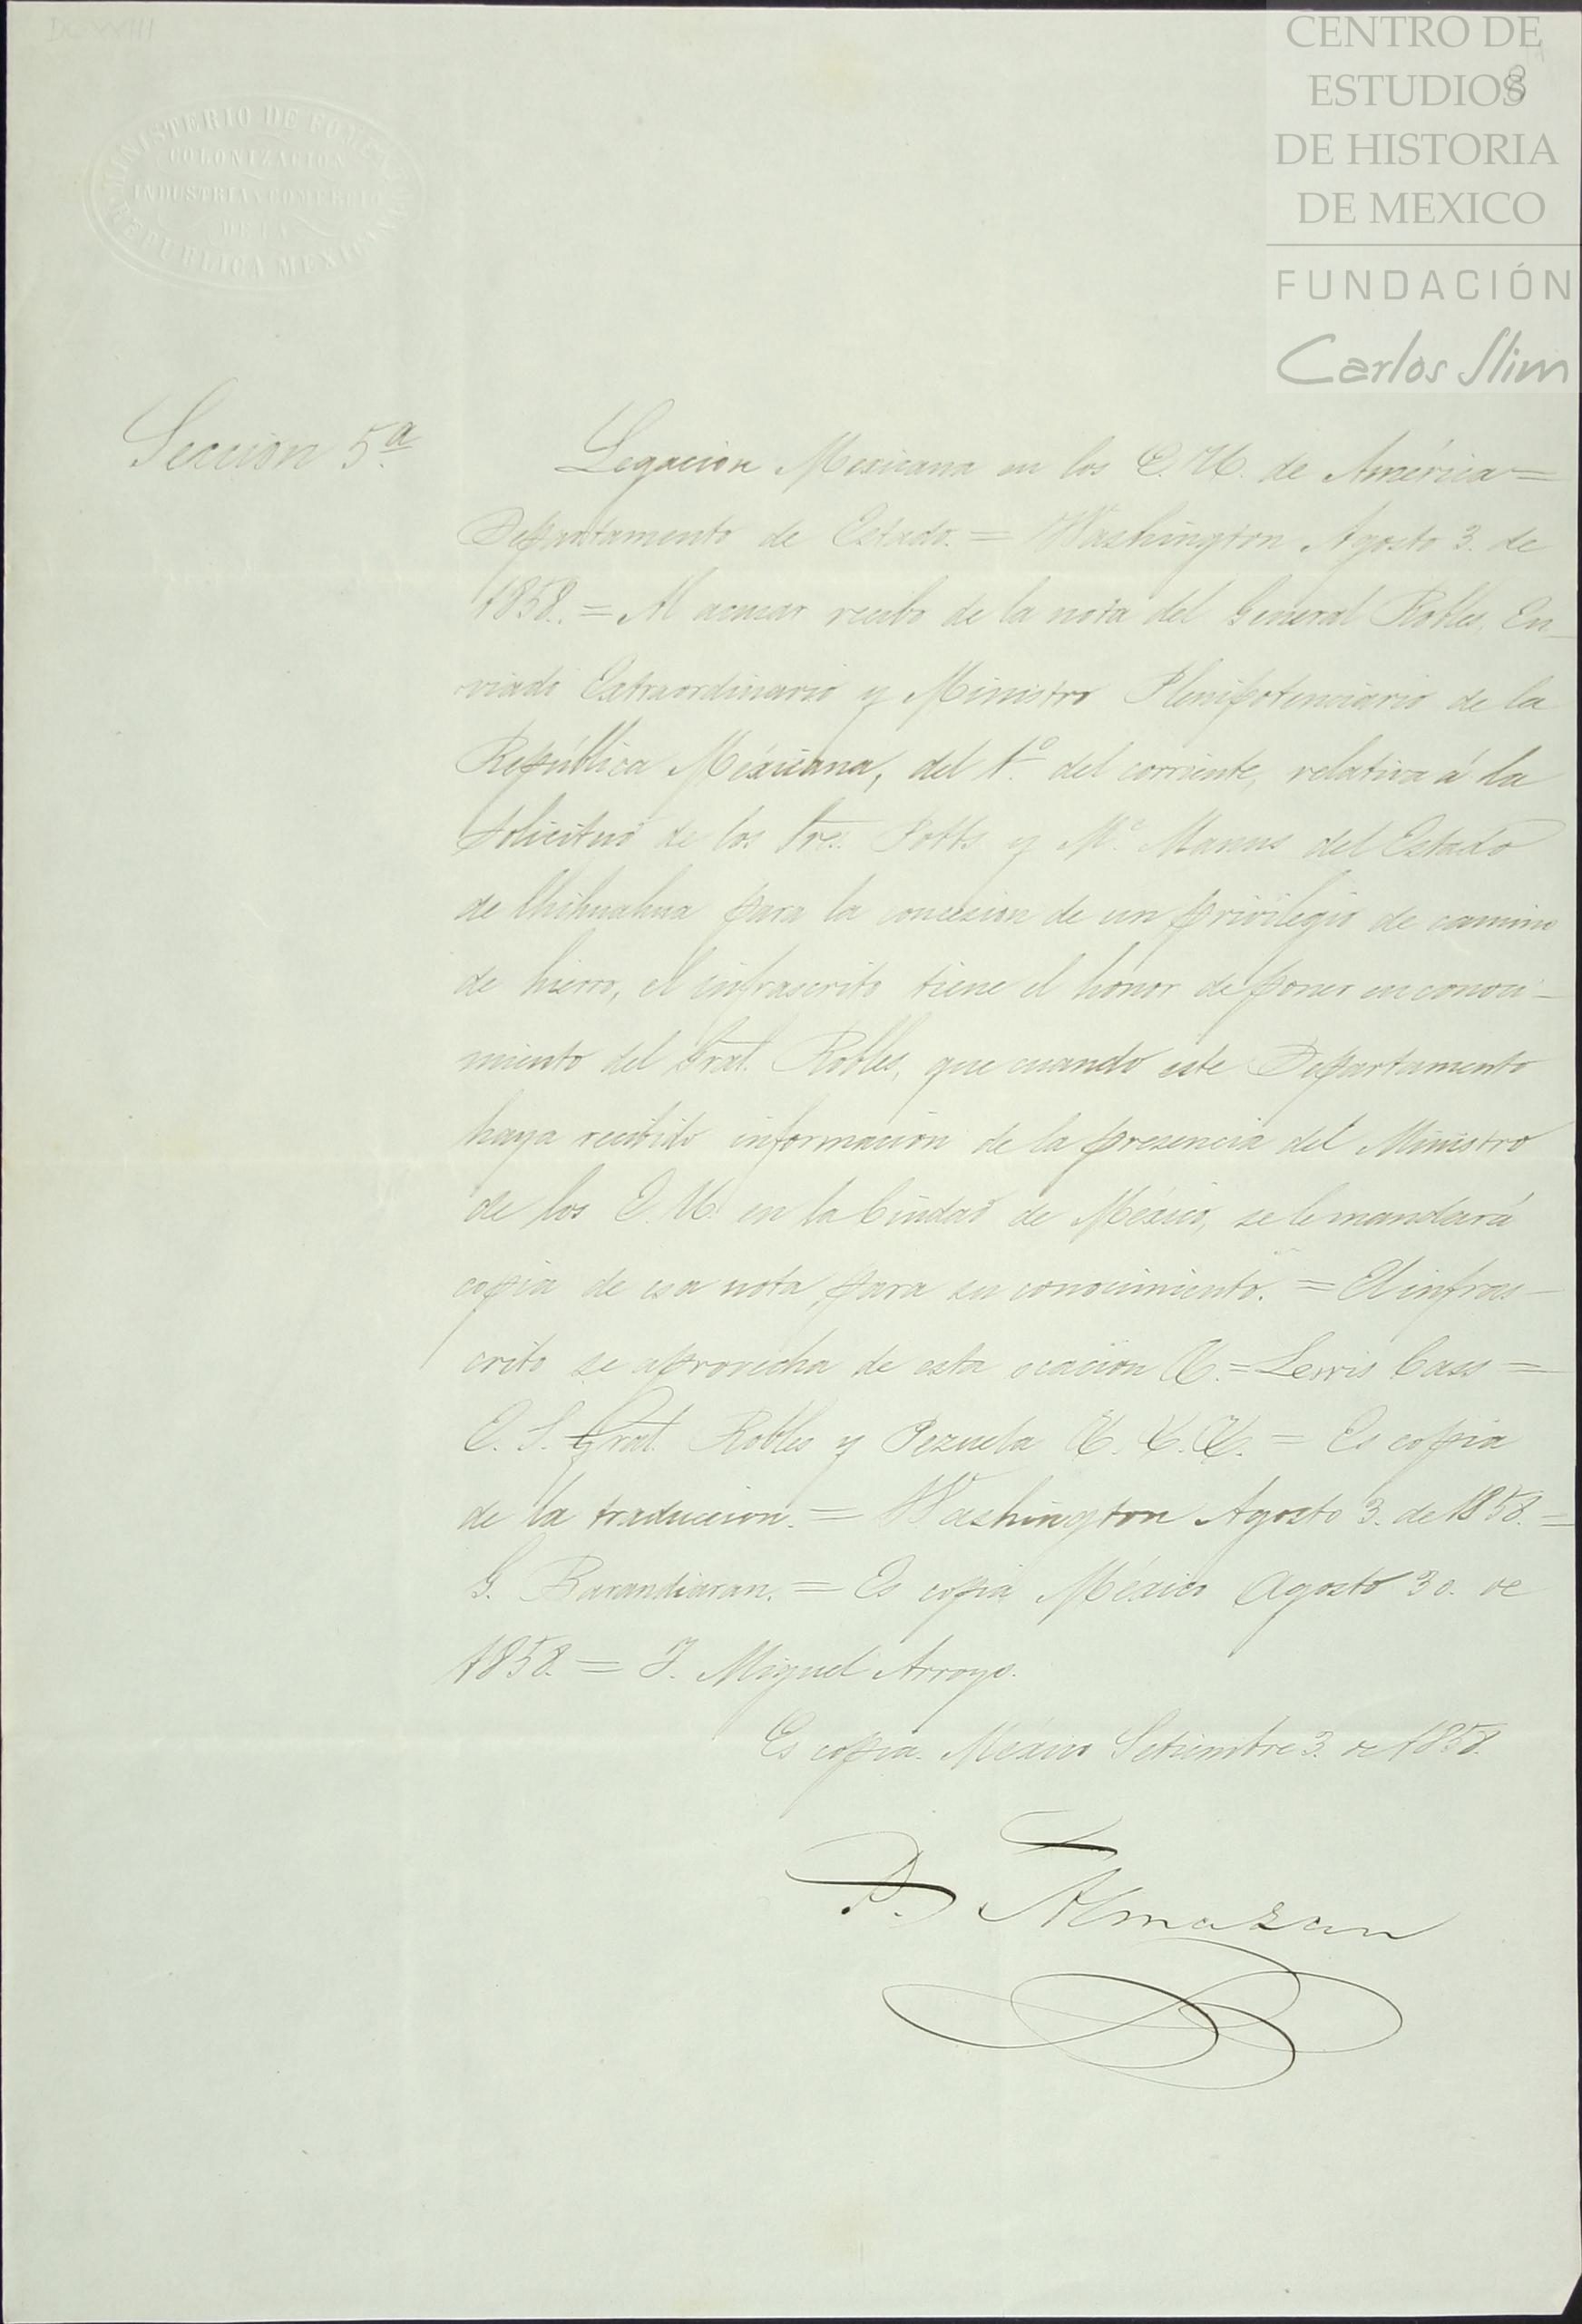 CENTRO DE
ESTUDIOS
DE HISTORIA
DE MEXICO
FUNDACIÓN
Carlos Slim
8
MINISTERIO DE FOMENTO
COLONIZACION
INDUSTRIA Y COMERCIO
DE LA
REPUBLICA MEXICANA
Seccion 5ª
Legacion Mexicana en los E. U. de América =
Departamento de Estado. = Washington Agosto 3. de
1858. = Al acusar recibo de la nota del General Robles, En-
viado Extraordinario y Ministro Plenipotenciario de la
República Méxicana, del 1º del corriente, relativa á la
solicitud de los Sres. Potts y Mc. Manus del Estado
de Chihuahua para la concesion de un privilegio de camino
de hierro, el infrascrito tiene el honor de poner en conoci-
miento del Gral. Robles, que cuando este Departamento
haya recibido informacion de la presencia del Ministro
de los E. U. en la Ciudad de México, se le mandará
copia de esa nota para su conocimiento. = El infras-
crito se aprovecha de esta ocacion &. = Lewis Cass =
E. S. Gral. Robles y Pezuela &. &. &. = Es copia
de la traduccion. = Washington Agosto 3. de 1858. =
G. Barandiaran. = Es copia México Agosto 30. de
1858. = J. Miguel Arroyo.
Es copia. México Setiembre 3. de 1858.
P. Almazan